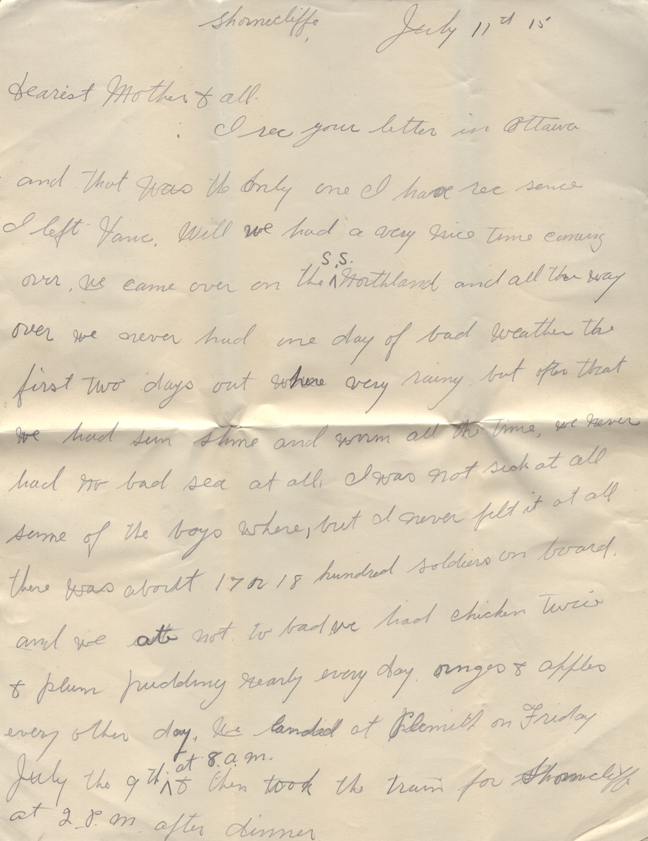 Shorncliffe,
July 11th 15
Dearest Mother & all.
I rec your letter in Ottawa
and that was the only one I have rec since
I left Vanc. Well we had a very nice time coming
over, we came over on the S.S. Northland and all the way
over we never had one day of bad weather the
first two days out where very rainy. but after that
we had sun shine and worm all the time, we never
had no bad sea at all. I was not sick at all
some of the boys where, but I never felt it at all
there was about 17 or 18 hundred soldiers on board.
and we ate not to bad we had chicken twice
& plum pudding nearly every day. ornges & apples
every other day. We landed at Plemith on Friday
July the 9th at 8. a.m. & then took the train for Shorncliffe
at 2. P.M. after dinner